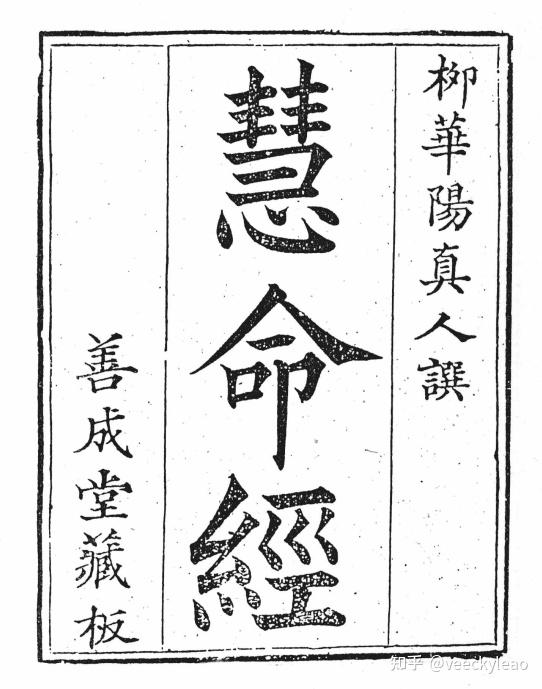 柳華陽真人譔
慧命經
善成堂藏板
知乎 @veeckyleao